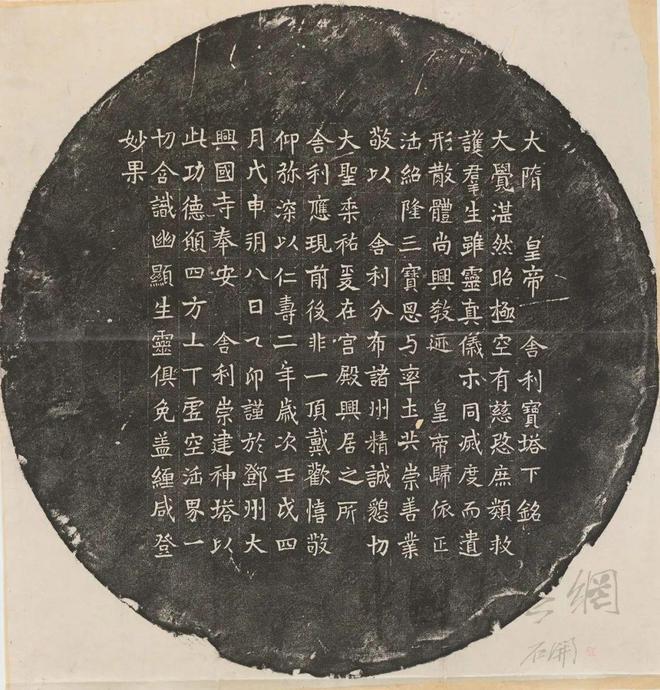 大隋　皇帝　舍利寶塔下銘
大覺湛然昭極空有慈愍庶類救
護羣生雖靈真儀示同滅度而遺
形散體尚興教迹　皇帝歸依正
法紹隆三寶思与率土共崇善業
敬以　舍利分布諸州精誠懇切
大聖垂祐爰在宮殿興居之所
舍利應現前後非一頂戴歡憘敬
仰弥深以仁壽二年歲次壬戌四
月戊申朔八日乙卯謹於鄧州大
興國寺奉安　舍利崇建神塔以
此功德願四方上下虛空法界一
切含識幽顯生靈俱免盖纏咸登
妙果
網